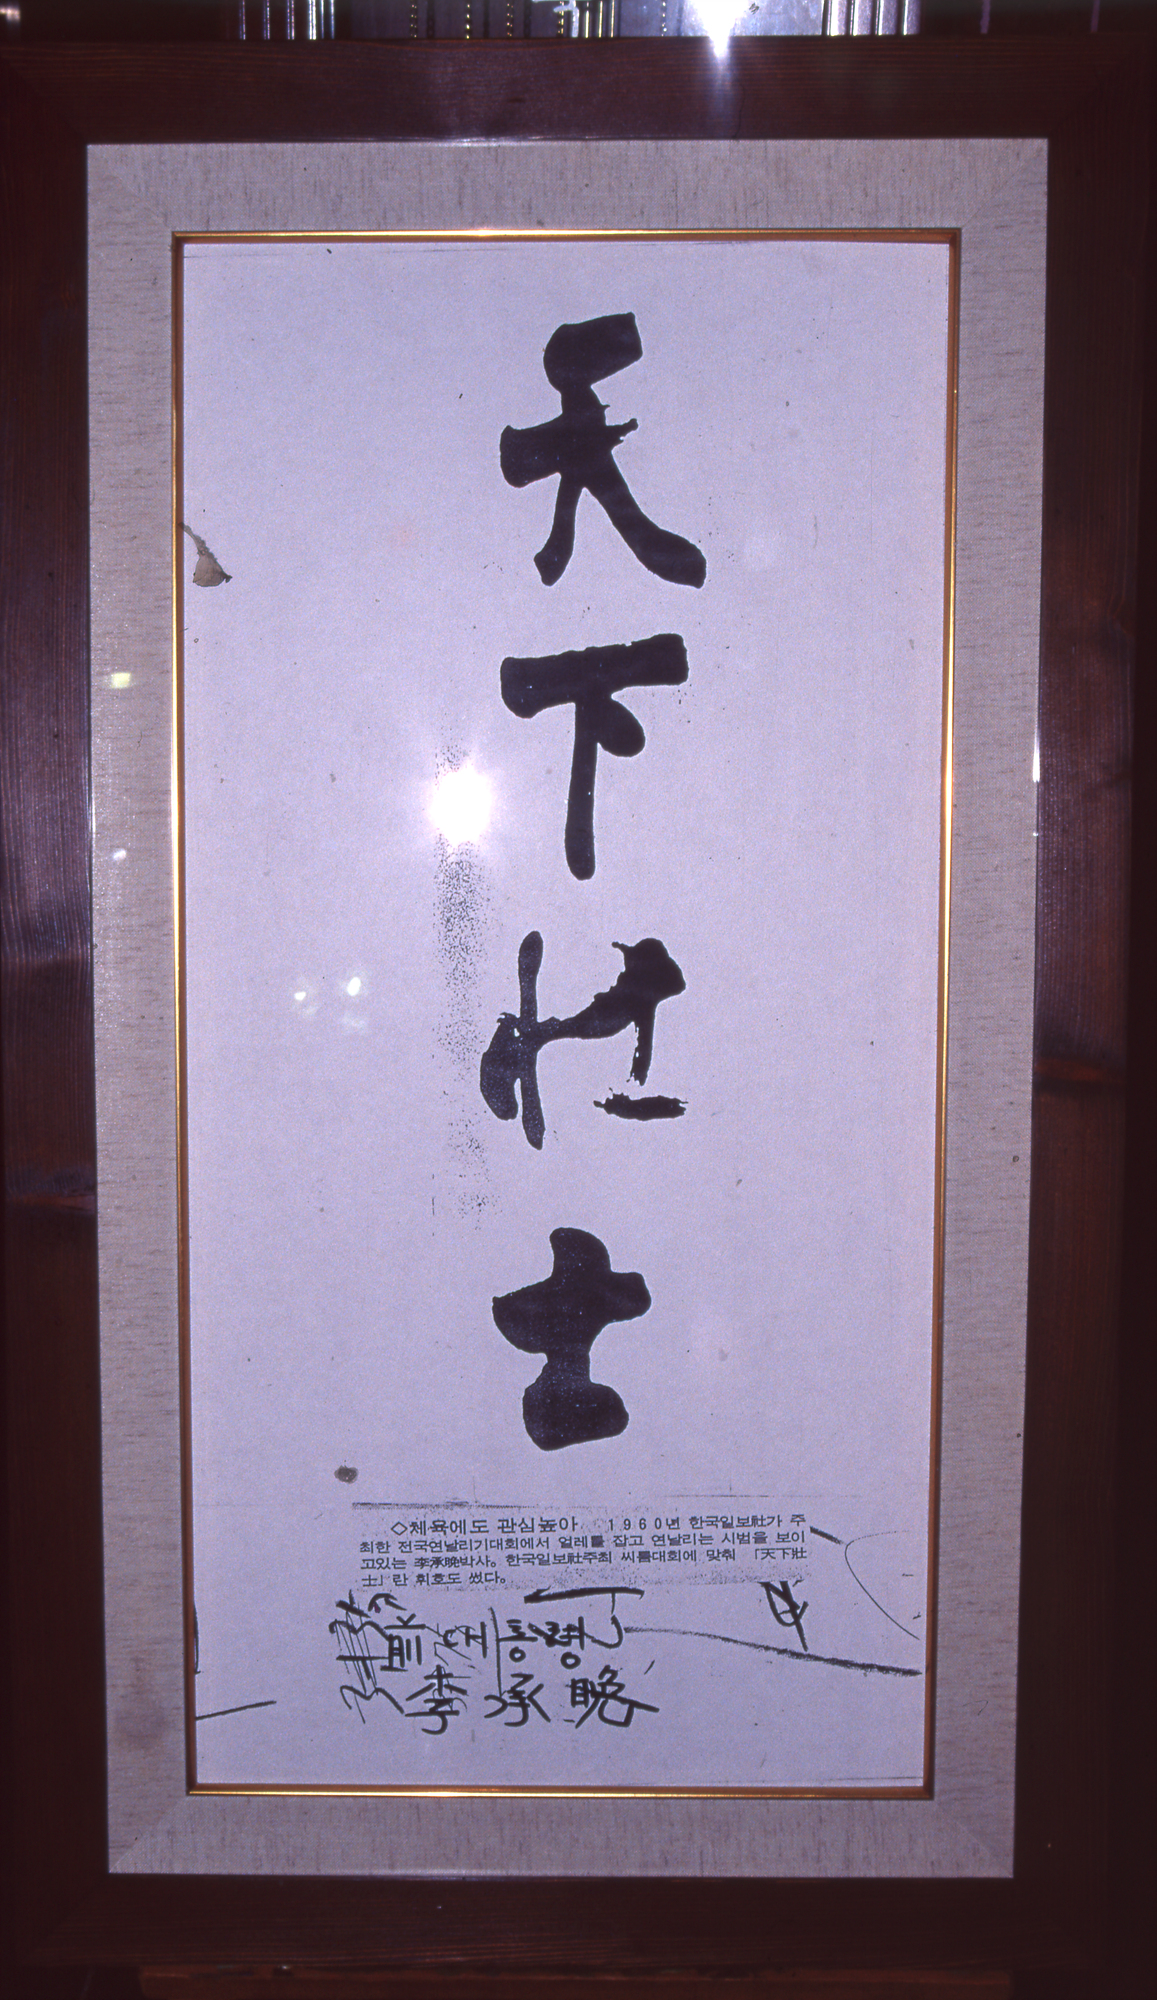 天下壯士
◇체육에도 관심높아 1960년 한국일보社가 주
최한 전국연날리기대회에서 얼레를 잡고 연날리는 시범을 보이
고있는 李承晩박사。한국일보社주최 씨름대회에 맞춰 「天下壯
士」란 휘호도 썼다。
통령
李承晩